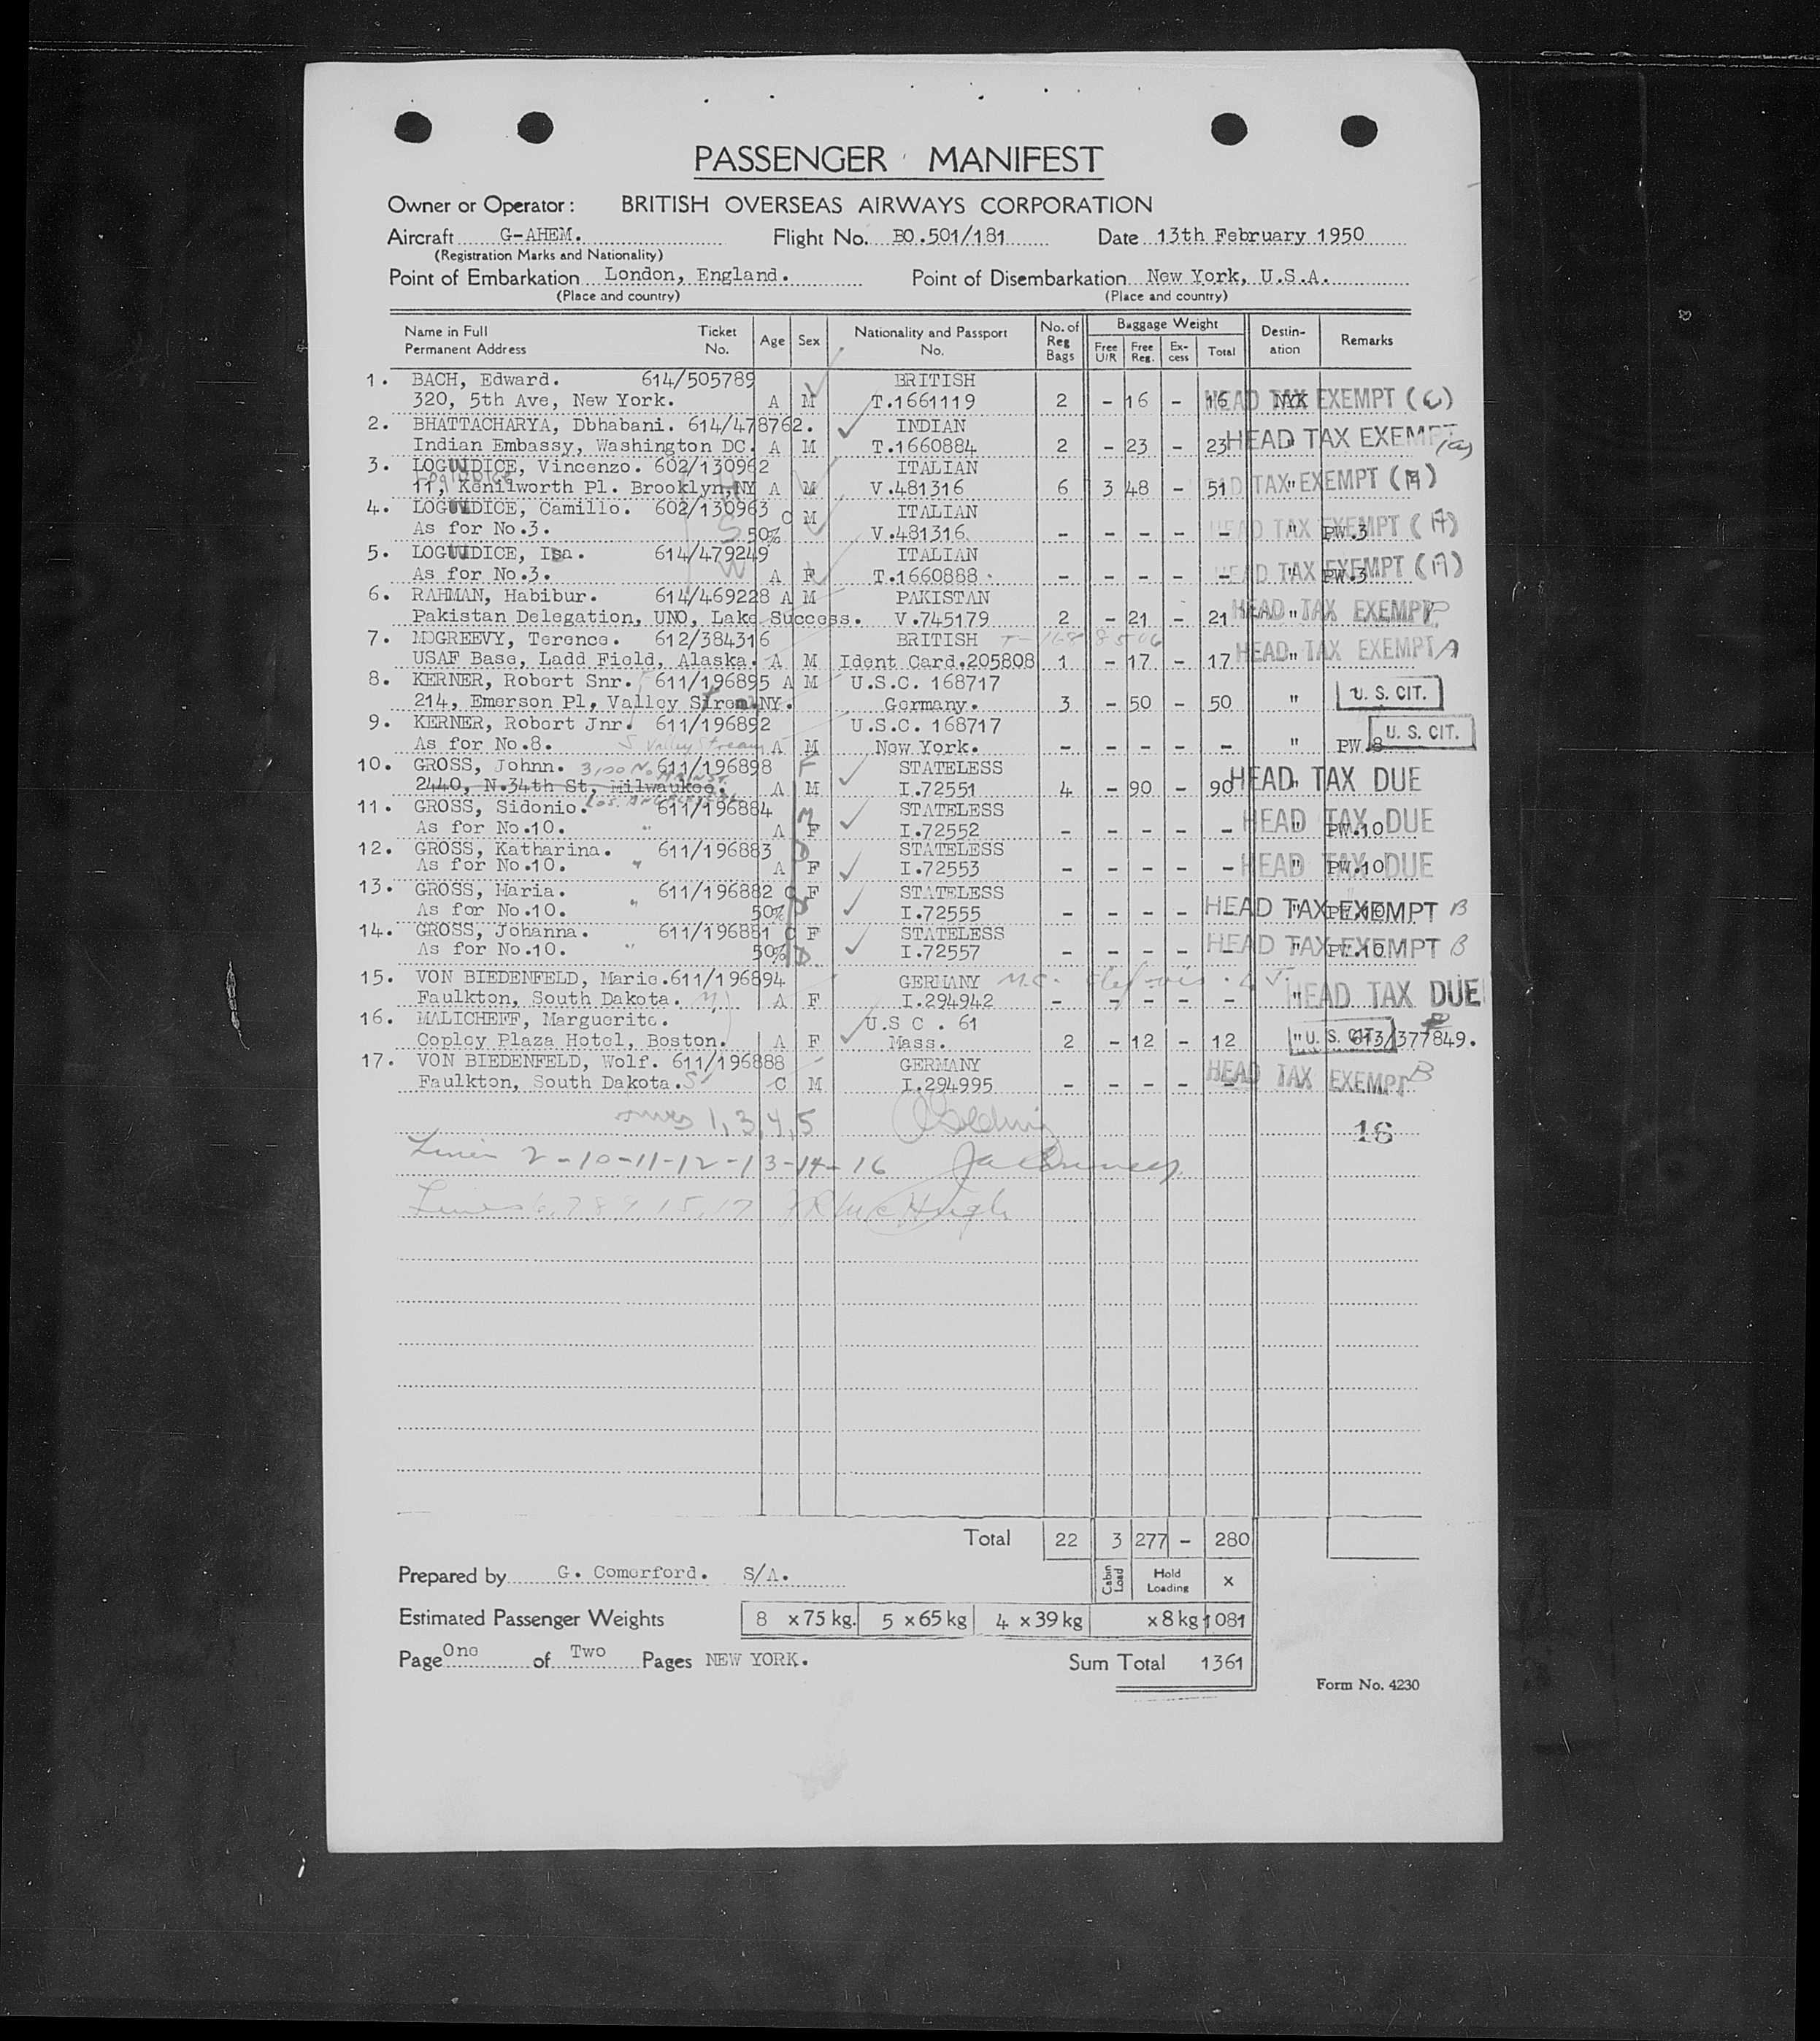 PASSENGER MANIFEST
Owner or Operator: BRITISH OVERSEAS AIRWAYS CORPORATION
Aircraft G-AHEM. Flight No. BO.501/181 Date 13th February 1950
(Registration Marks and Nationality)
Point of Embarkation London, England. Point of Disembarkation New York, U.S.A.
(Place and country) (Place and country)
Name in Full Permanent Address Ticket No. Age Sex Nationality and Passport No. No. of Reg Bags Baggage Weight Free U/R Free Reg. Ex-cess Total Destin-ation Remarks
1. BACH, Edward. 614/505789 BRITISH
320, 5th Ave, New York. A M T.1661119 2 - 16 - 16 NYK HEAD TAX EXEMPT (C)
2. BHATTACHARYA, Dbhabani. 614/478762. INDIAN
Indian Embassy, Washington DC. A M T.1660884 2 - 23 - 23 " HEAD TAX EXEMPT
3. LOGUIDICE, Vincenzo. 602/130962 ITALIAN
11, Kenilworth Pl. Brooklyn, NY A M V.481316 6 3 48 - 51 " HEAD TAX EXEMPT (A)
4. LOGUIDICE, Camillo. 602/130963 C M ITALIAN
As for No.3. 50% V.481316 - - - - - " PW.3 HEAD TAX EXEMPT (A)
5. LOGUIDICE, Isa. 614/479249 ITALIAN
As for No.3. A F T.1660888 - - - - - " PW.3 HEAD TAX EXEMPT (A)
6. RAHMAN, Habibur. 614/469228 A M PAKISTAN
Pakistan Delegation, UNO, Lake Success. V.745179 2 - 21 - 21 " HEAD TAX EXEMPT
7. MOGREEVY, Terence. 612/384316 BRITISH T-1688506
USAF Base, Ladd Field, Alaska. A M Ident Card.205808 1 - 17 - 17 " HEAD TAX EXEMPT A
8. KERNER, Robert Snr. 611/196895 A M U.S.C. 168717
214, Emerson Pl, Valley Strem. NY. Germany. 3 - 50 - 50 " U. S. CIT.
9. KERNER, Robert Jnr. 611/196892 U.S.C. 168717
As for No.8. S Valley Stream A M New York. - - - - - " PW.8 U. S. CIT.
10. GROSS, Johnn. 3100 No. Main St. 611/196898 F STATELESS
2440, N.34th St, Milwaukee. Los Angeles A M I.72551 4 - 90 - 90 " HEAD TAX DUE
11. GROSS, Sidonie. 611/196884 M STATELESS
As for No.10. " A F I.72552 - - - - - " PW.10 HEAD TAX DUE
12. GROSS, Katharina. 611/196883 D STATELESS
As for No.10. " A F I.72553 - - - - - " PW.10 HEAD TAX DUE
13. GROSS, Maria. 611/196882 C F STATELESS
As for No.10. " 50% D I.72555 - - - - - " PW.10 HEAD TAX EXEMPT B
14. GROSS, Johanna. 611/196881 C F STATELESS
As for No.10. " 50% D I.72557 - - - - - " PW.10 HEAD TAX EXEMPT B
15. VON BIEDENFELD, Marie. 611/196894 GERMANY
Faulkton, South Dakota. M A F I.294942 - - - - - " HEAD TAX DUE
16. MALICHEFF, Marguerite. U.S C . 61
Copley Plaza Hotel, Boston. A F Mass. 2 - 12 - 12 " U. S. CIT. 613/377849.
17. VON BIEDENFELD, Wolf. 611/196888 GERMANY
Faulkton, South Dakota. S C M I.294995 - - - - - HEAD TAX EXEMPT B
Lines 1, 3, 4, 5
16
Lines 2-10-11-12-13-14-16
Lines 6, 7, 8, 9, 15, 17 McHugh
Total 22 3 277 - 280
Cabin Load Hold Loading x
Prepared by G. Comerford. S/A.
Estimated Passenger Weights 8 x 75 kg. 5 x 65 kg 4 x 39 kg x 8 kg 1081
Page One of Two Pages NEW YORK. Sum Total 1361
Form No. 4230